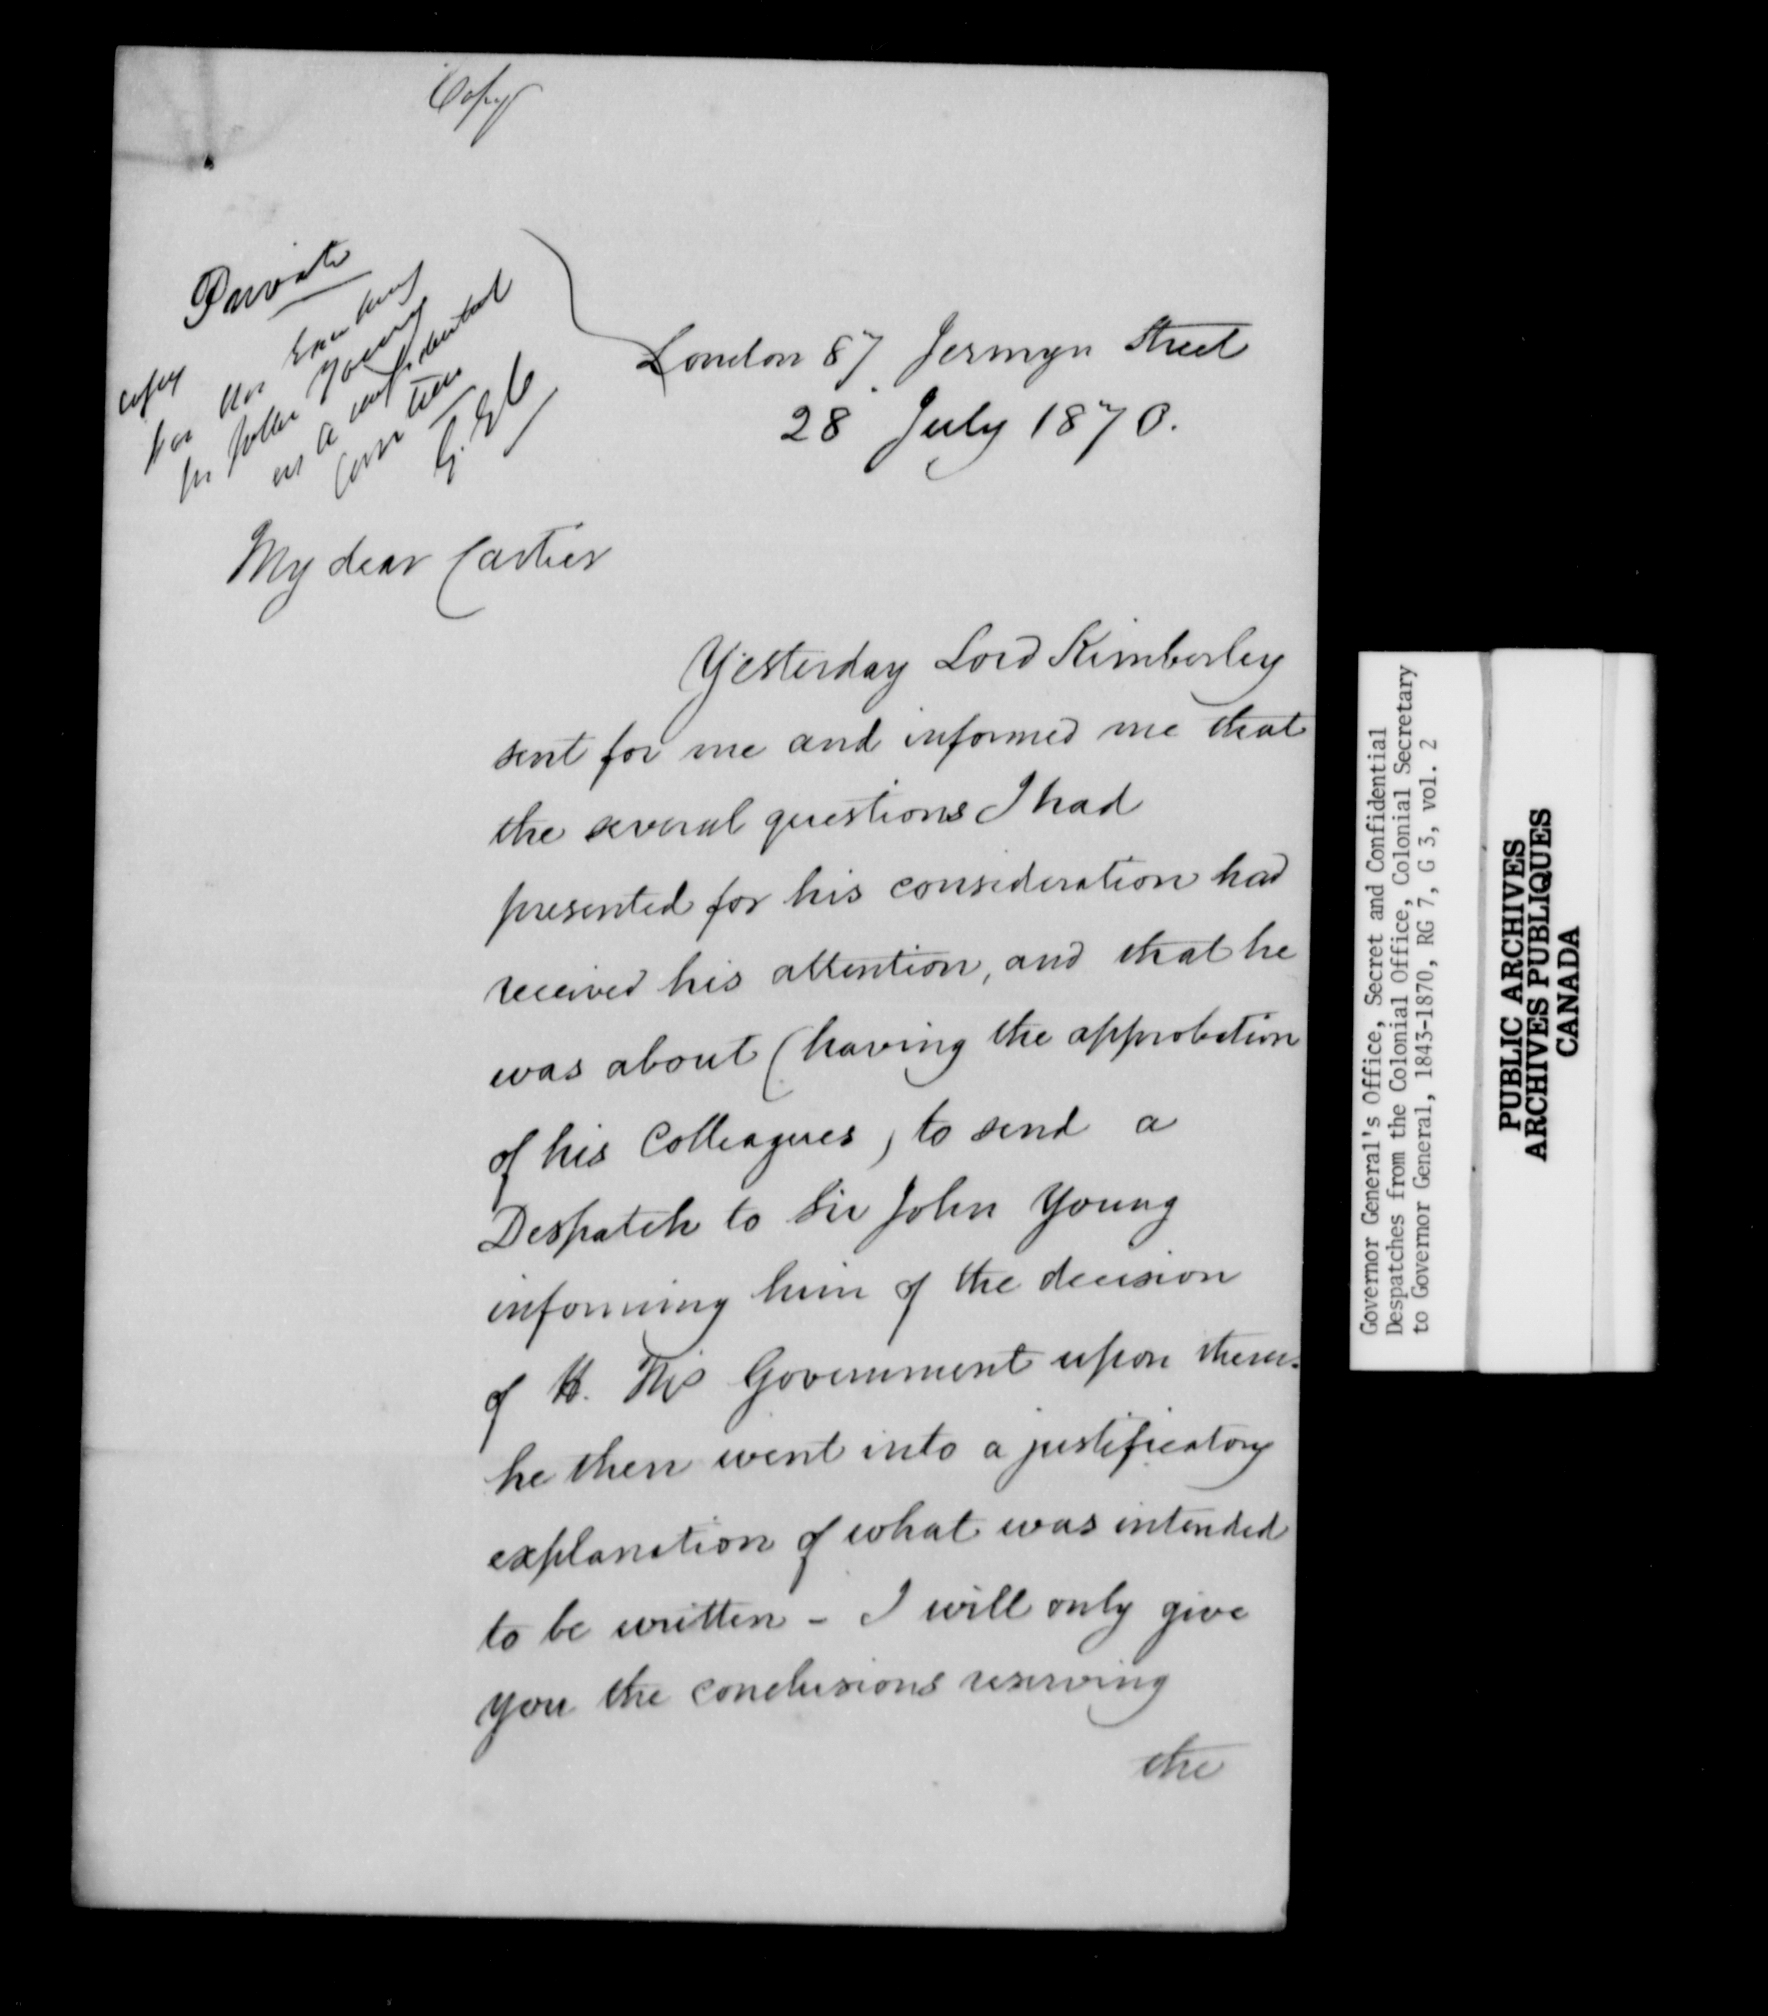 Copy
Private
copy
for His Excellency
Sir John Young
as a confidential
G. E. C
London 87 Jermyn Street
28 July 1870.
My dear Cartier
Yesterday Lord Kimberley
sent for me and informed me that
the several questions I had
presented for his consideration had
received his attention, and that he
was about (having the approbation
of his Colleagues) to send a
Despatch to Sir John Young
informing him of the decision
of H. M's Government upon them.
he then went into a justificatory
explanation of what was intended
to be written - I will only give
you the conclusions reserving
the
Governor General's Office, Secret and Confidential
Despatches from the Colonial Office, Colonial Secretary
to Governor General, 1843-1870, RG 7, G 3, vol. 2
PUBLIC ARCHIVES
ARCHIVES PUBLIQUES
CANADA